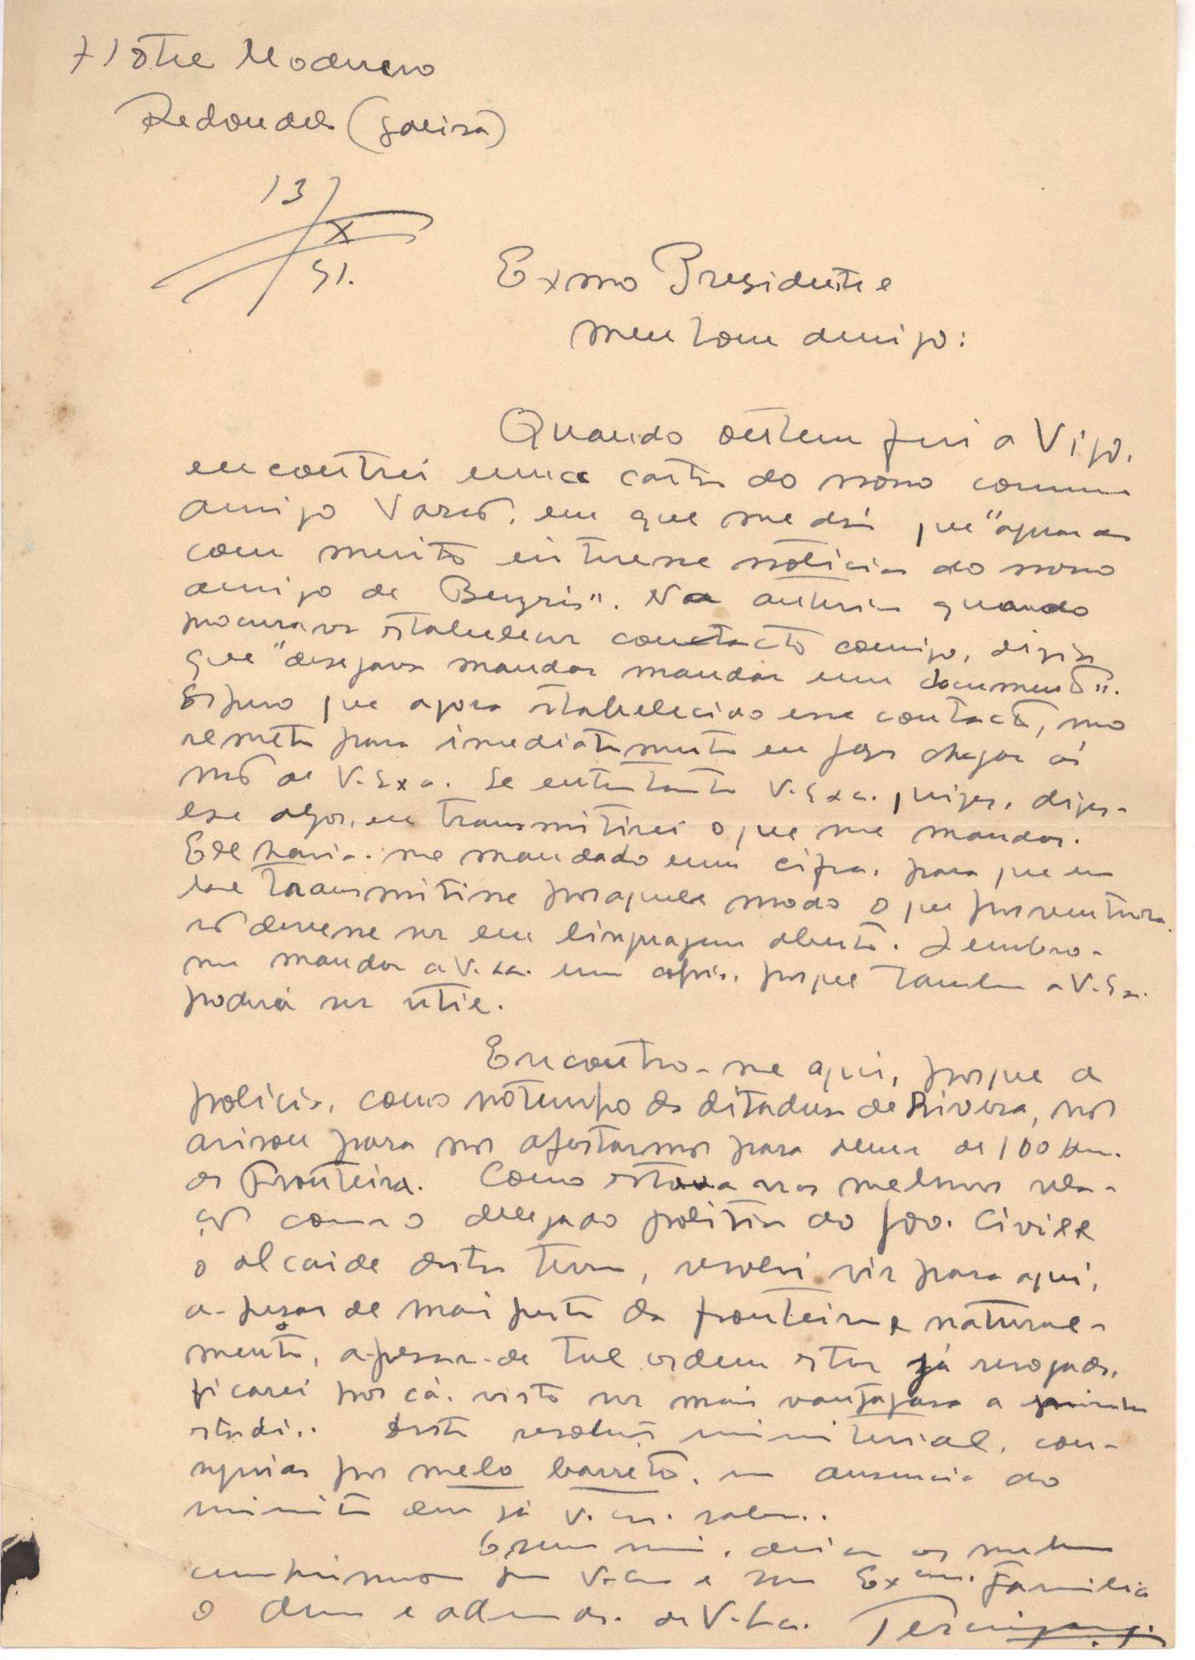 Hotel Moderno
Redondela (Galiza)
13/X/31.
Exmo Presidente
meu bom amigo:
Quando ontem fui a Vigo,
encontrei uma carta do nosso comum
amigo Varão, em que me diz que "aguarda
com muito interesse noticias do nosso
amigo de Beyris". Na anterior quando
procurava estabelecer contacto comigo, dizia
que "desejava mandar mandar um documento".
Espero que agora estabelecido esse contacto, mo
remeta para imediatamente eu fazer chegar ás
mãos de V. Exa. Se entretanto V. Exa. quizer, dizer-
lhe algo, eu transmitirei o que me mandar.
Ele havia-me mandado uma cifra, para que eu
lhe transmitisse por aquele modo o que porventura
não devesse ser em linguagem aberta. Lembro-
me mandar a V. Exa. uma copia, porque tambem a V. Exa.
poderá ser util.
Encontro-me aqui, porque a
policia, como no tempo da ditadura de Rivera, nos
avisou para nos afastarmos para alem de 100 km.
da fronteira. Como estava nas melhores rela-
ções com o delegado politico do Gov. Civil e
o alcaide desta terra, resolvi vir para aqui,
a-pesar de mais perto da fronteira e natural-
mente, a-pesar-de tal ordem estar já revogada,
ficarei por cá, visto ser mais vantajosa a minha
estadia. Desta resolução ministerial, con-
seguida por Melo Barreto, na ausencia do
ministro em já V. Exa. sabe.
os melhores
cumprimentos para V. Exa e sua Exma. Familia
o de V. Exa.